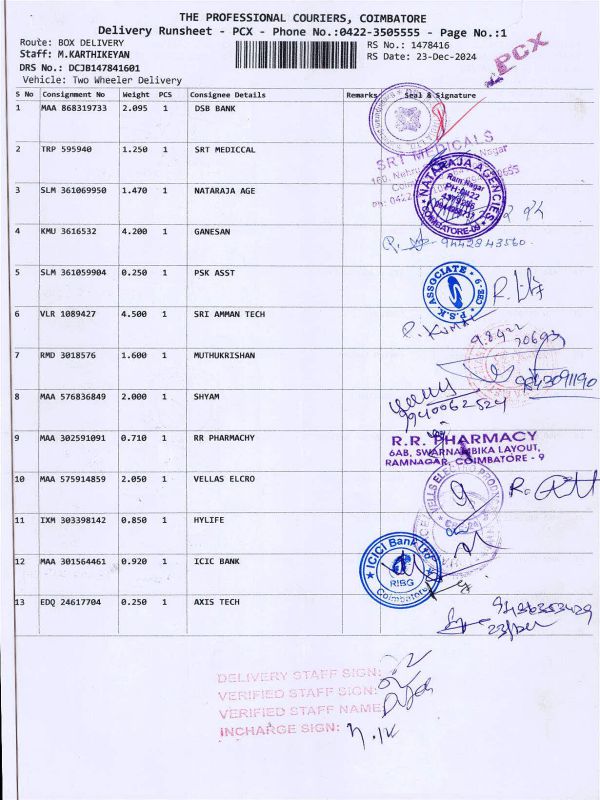 THE PROFESSIONAL COURIERS, COIMBATORE
Delivery Runsheet - PCX - Phone No.:0422-3505555 - Page No.:1
Route: BOX DELIVERY
RS No.: 1478416
Staff: M.KARTHIKEYAN
RS Date: 23-Dec-2024
DRS No.: DCJB147841601
Vehicle: Two Wheeler Delivery
PCX
S No Consignment No Weight PCS Consignee Details Remarks Seal & Signature
1 MAA 868319733 2.095 1 DSB BANK
2 TRP 595940 1.250 1 SRT MEDICCAL
SRT MEDICALS
3 SLM 361069950 1.470 1 NATARAJA AGE
NATARAJA AGENCIES
Ram Nagar
COIMBATORE-09
4 KMU 3616532 4.200 1 GANESAN
9442843560
5 SLM 361059904 0.250 1 PSK ASST
P.S.K. ASSOCIATE
6 VLR 1089427 4.500 1 SRI AMMAN TECH
P. Kumar
7 RMD 3018576 1.600 1 MUTHUKRISHAN
9843091190
8 MAA 576836849 2.000 1 SHYAM
9940062524
9 MAA 302591091 0.710 1 RR PHARMACHY
R.R. PHARMACY
6AB, SWARNAMBIKA LAYOUT,
RAMNAGAR, COIMBATORE - 9
10 MAA 575914859 2.050 1 VELLAS ELCRO
11 IXM 303398142 0.850 1 HYLIFE
12 MAA 301564461 0.920 1 ICIC BANK
ICICI Bank Ltd
RIBG
Coimbatore
13 EDQ 24617704 0.250 1 AXIS TECH
DELIVERY STAFF SIGN:
VERIFIED STAFF SIGN:
VERIFIED STAFF NAME
INCHARGE SIGN: